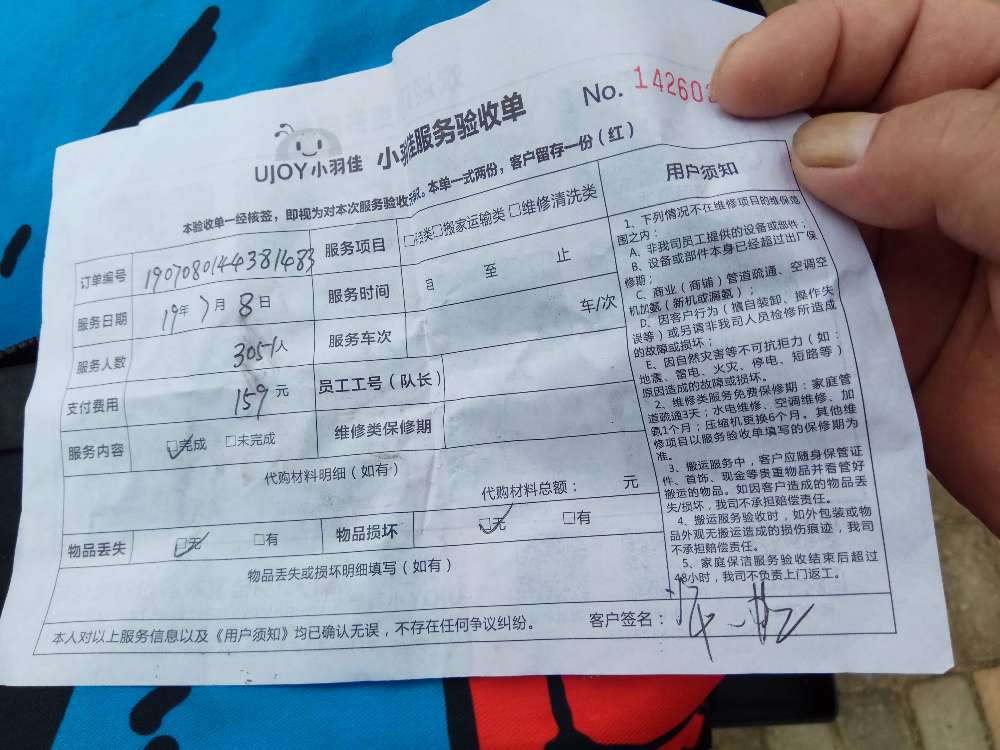 UJOY小羽佳 小羽佳服务验收单
No. 14260
本验收单一经核签，即视为对本次服务验收 。本单一式两份，客户留存一份（红）
订单编号 1907080144381483 服务项目 □ 类□搬家运输类□维修清洗类
服务日期 19年7月8日 服务时间 自 至 止
服务人数 3051人 服务车次 车/次
支付费用 159元 员工工号（队长）
服务内容 □完成 □未完成 维修类保修期
代购材料明细（如有）
代购材料总额： 元
物品丢失 □无 □有 物品损坏 □无 □有
物品丢失或损坏明细填写（如有）
用户须知
1、下列情况不在维修项目的维保范
围之内：
A、非我司员工提供的设备或部件；
B、设备或部件本身已经超过出厂保
修期；
C、商业（商铺）管道疏通、空调空
机加氨（新机或漏氨）；
D、因客户行为（擅自装卸、操作失
误等）或另请非我司人员检修所造成
的故障或损坏；
E、因自然灾害等不可抗拒力（如：
地震、雷电、火灾、停电、短路等）
原因造成的故障或损坏。
2、维修类服务免费保修期：家庭管
道疏通3天；水电维修、空调维修、加
氨1个月；压缩机更换6个月。其他维
修项目以服务验收单填写的保修期为
准。
3、搬运服务中，客户应随身保管证
件、首饰、现金等贵重物品并看管好
搬运的物品。如因客户造成的物品丢
失/损坏，我司不承担赔偿责任。
4、搬运服务验收时，如外包装或物
品外观无搬运造成的损伤痕迹，我司
不承担赔偿责任。
5、家庭保洁服务验收结束后超过
48小时，我司不负责上门返工。
本人对以上服务信息以及《用户须知》均已确认无误，不存在任何争议纠纷。 客户签名：